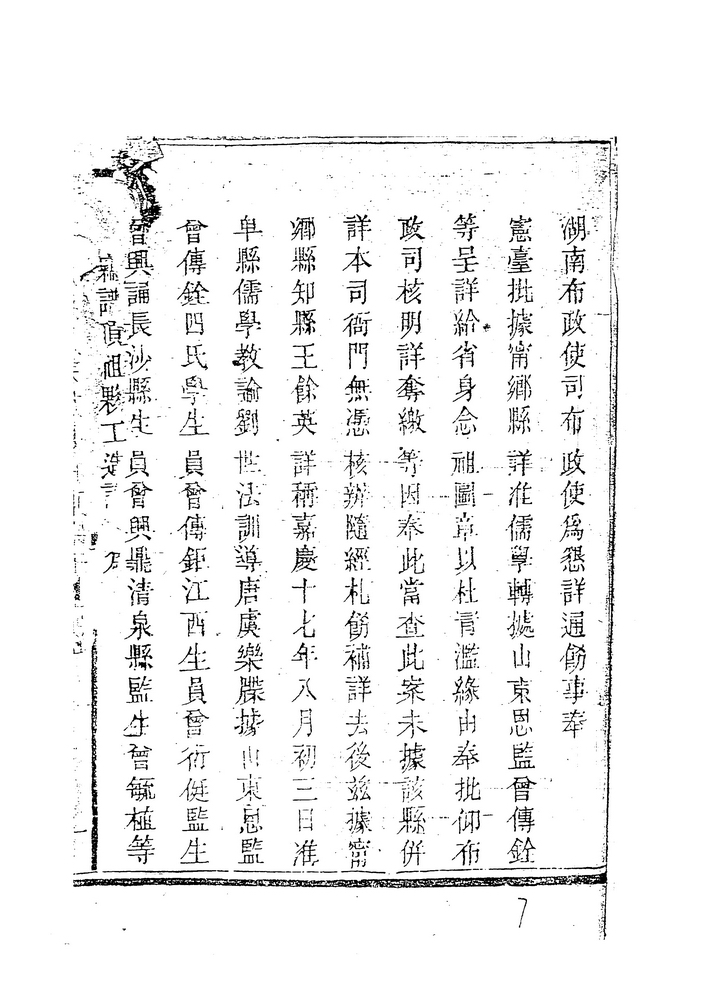 湖南布政使司布政使爲懇詳通飭事奉
憲臺批據甯鄉縣詳准儒學轉據山東恩監曾傳銓
等呈詳給省身念祖圖章以杜冒濫緣由奉批仰布
政司核明詳奪繳等因奉此當查此案未據該縣併
詳本司衙門無憑核辦隨經札飭補詳去後兹據甯
鄉縣知縣王餘英詳稱嘉慶十七年八月初三日准
阜縣儒學教諭劉世法訓導唐虞樂牒據山東恩監
曾傳銓四氏學生員曾傳鉅江西生員曾衍侹監生
曾興誦長沙縣生員曾興鼎清泉縣監生曾毓植等
祖夥工
7